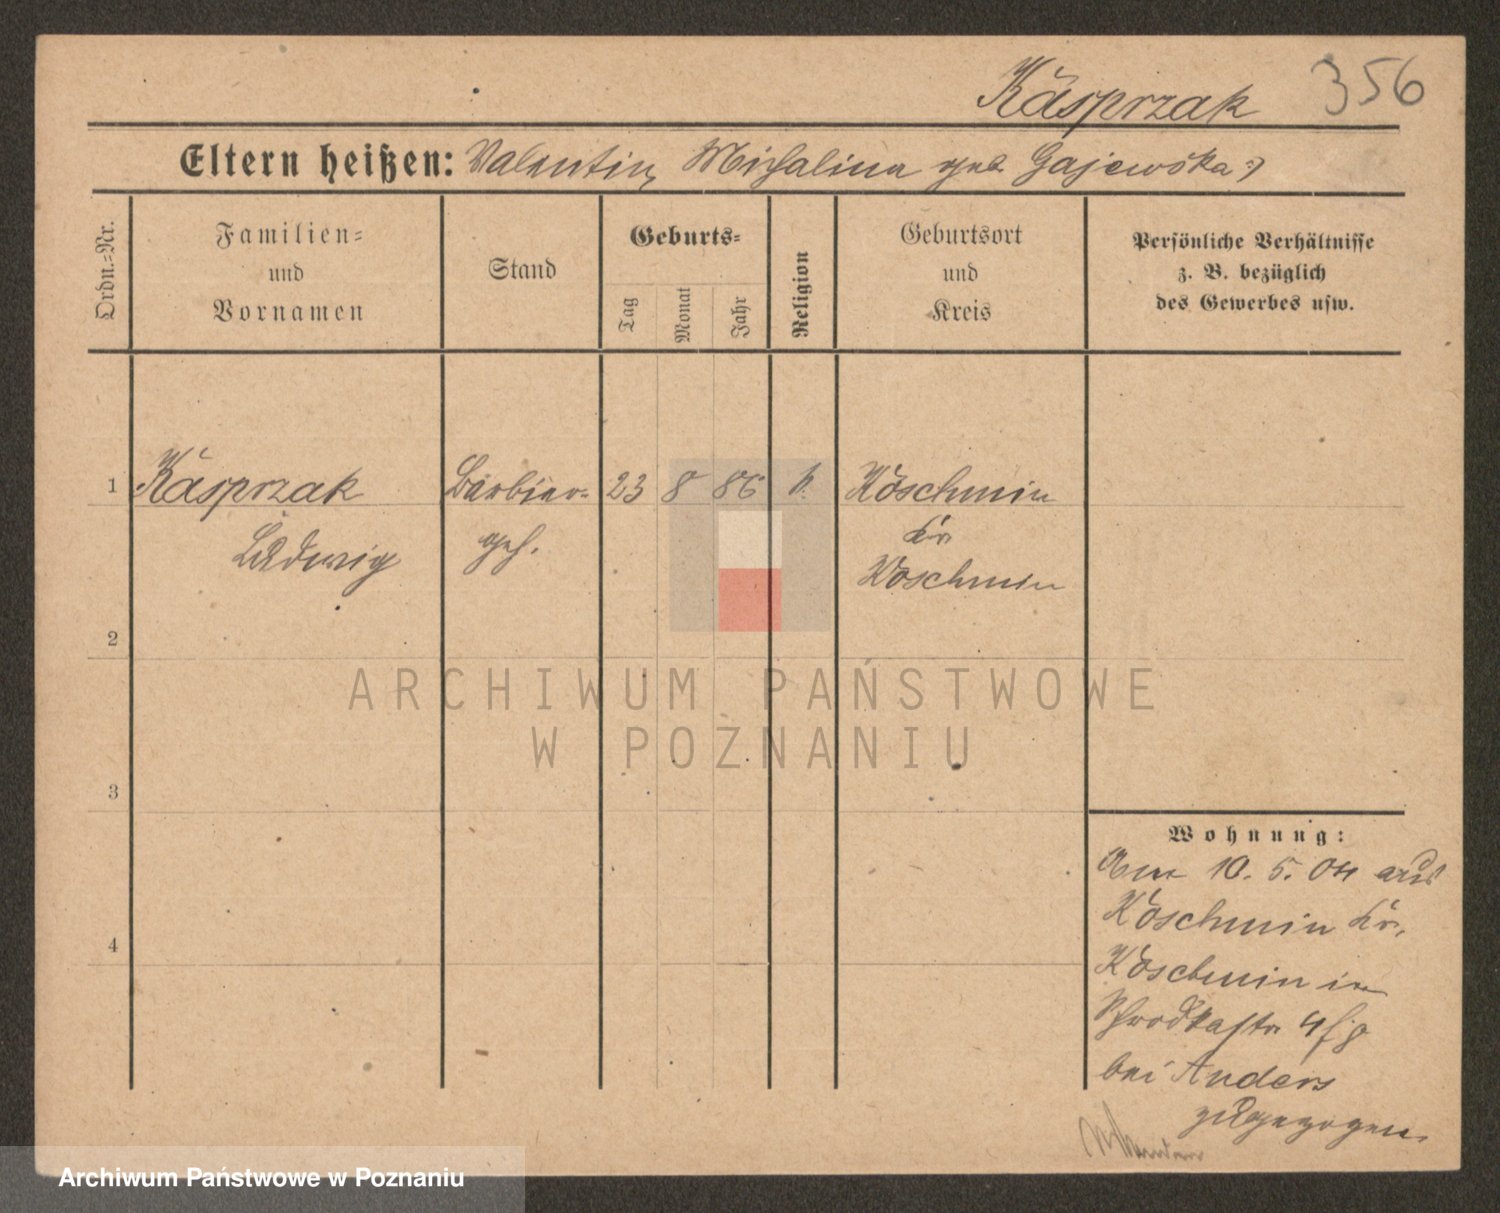 Kasprzak 356
Eltern heißen: Valentin, Michalina geb. Gajewska
Ordn.-Nr.
Familien-
und
Vornamen
Stand
Geburts-
Tag
Monat
Jahr
Religion
Geburtsort
und
Kreis
Persönliche Verhältnisse
z. B. bezüglich
des Gewerbes usw.
1 Kasprzak Barbier- 23 8 86 k. Koschmin
Ludwig geh. Kr.
Koschmin
2
3
4
Wohnung:
Am 10. 5. 04 aus
Koschmin Kr.
Koschmin in
Schrodkastr. 4
bei Anders
zugezogen.
ARCHIWUM PAŃSTWOWE
W POZNANIU
Archiwum Państwowe w Poznaniu